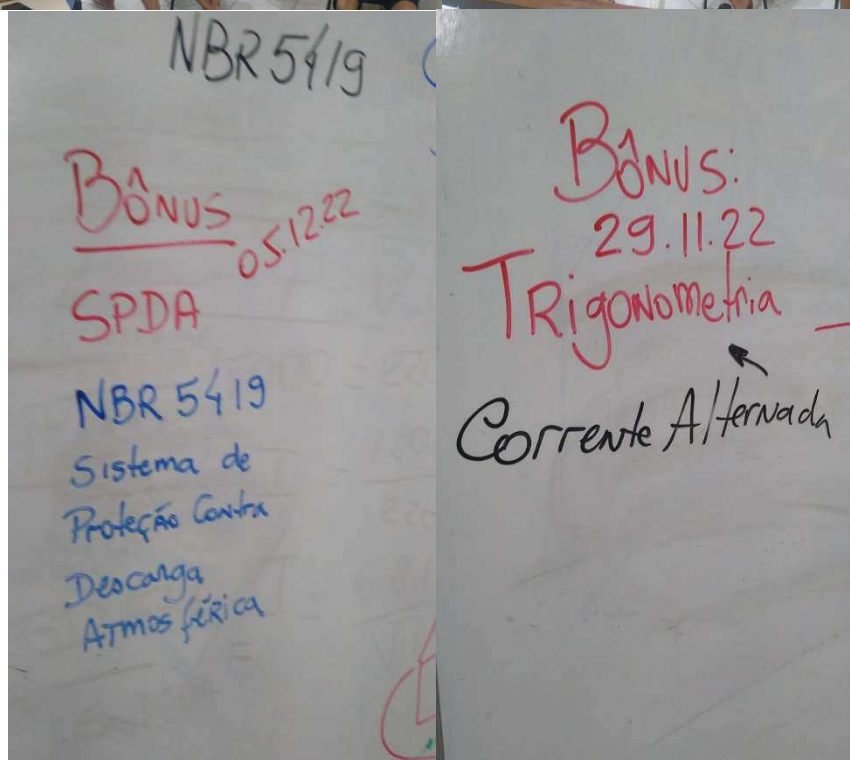 NBR 5419
BÔNUS
05.12.22
SPDA
NBR 5419
Sistema de
Proteção Contra
Descarga
Atmosférica
BÔNUS:
29.11.22
TRigonometria
Corrente Alternada